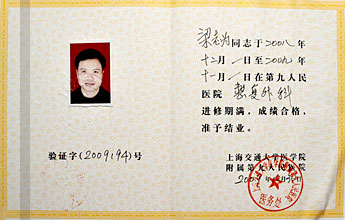 梁志为同志于2008年
十二月 1日至2009年
十一月 1日在第九人民
医院 整复外科
进修期满，成绩合格，
准予结业。
验证字(2009194)号
上海交通大学医学院
附属第九人民医院
2009年
医务处